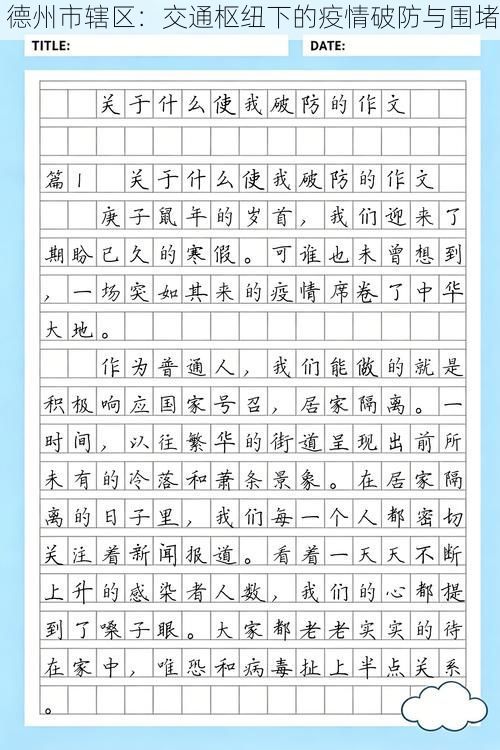 德州市辖区：交通枢纽下的疫情破防与围堵
TITLE: DATE:
关于什么使我破防的作文
篇1 关于什么使我破防的作文
庚子鼠年的岁首，我们迎来了
期盼已久的寒假。可谁也未曾想到
，一场突如其来的疫情席卷了中华
大地。
作为普通人，我们能做的就是
积极响应国家号召，居家隔离。一
时间，以往繁华的街道呈现出前所
未有的冷落和萧条景象。在居家隔
离的日子里，我们每一个人都密切
关注着新闻报道。看着一天天不断
上升的感染者人数，我们的心都提
到了嗓子眼。大家都老老实实的待
在家中，唯恐和病毒扯上半点关系
。